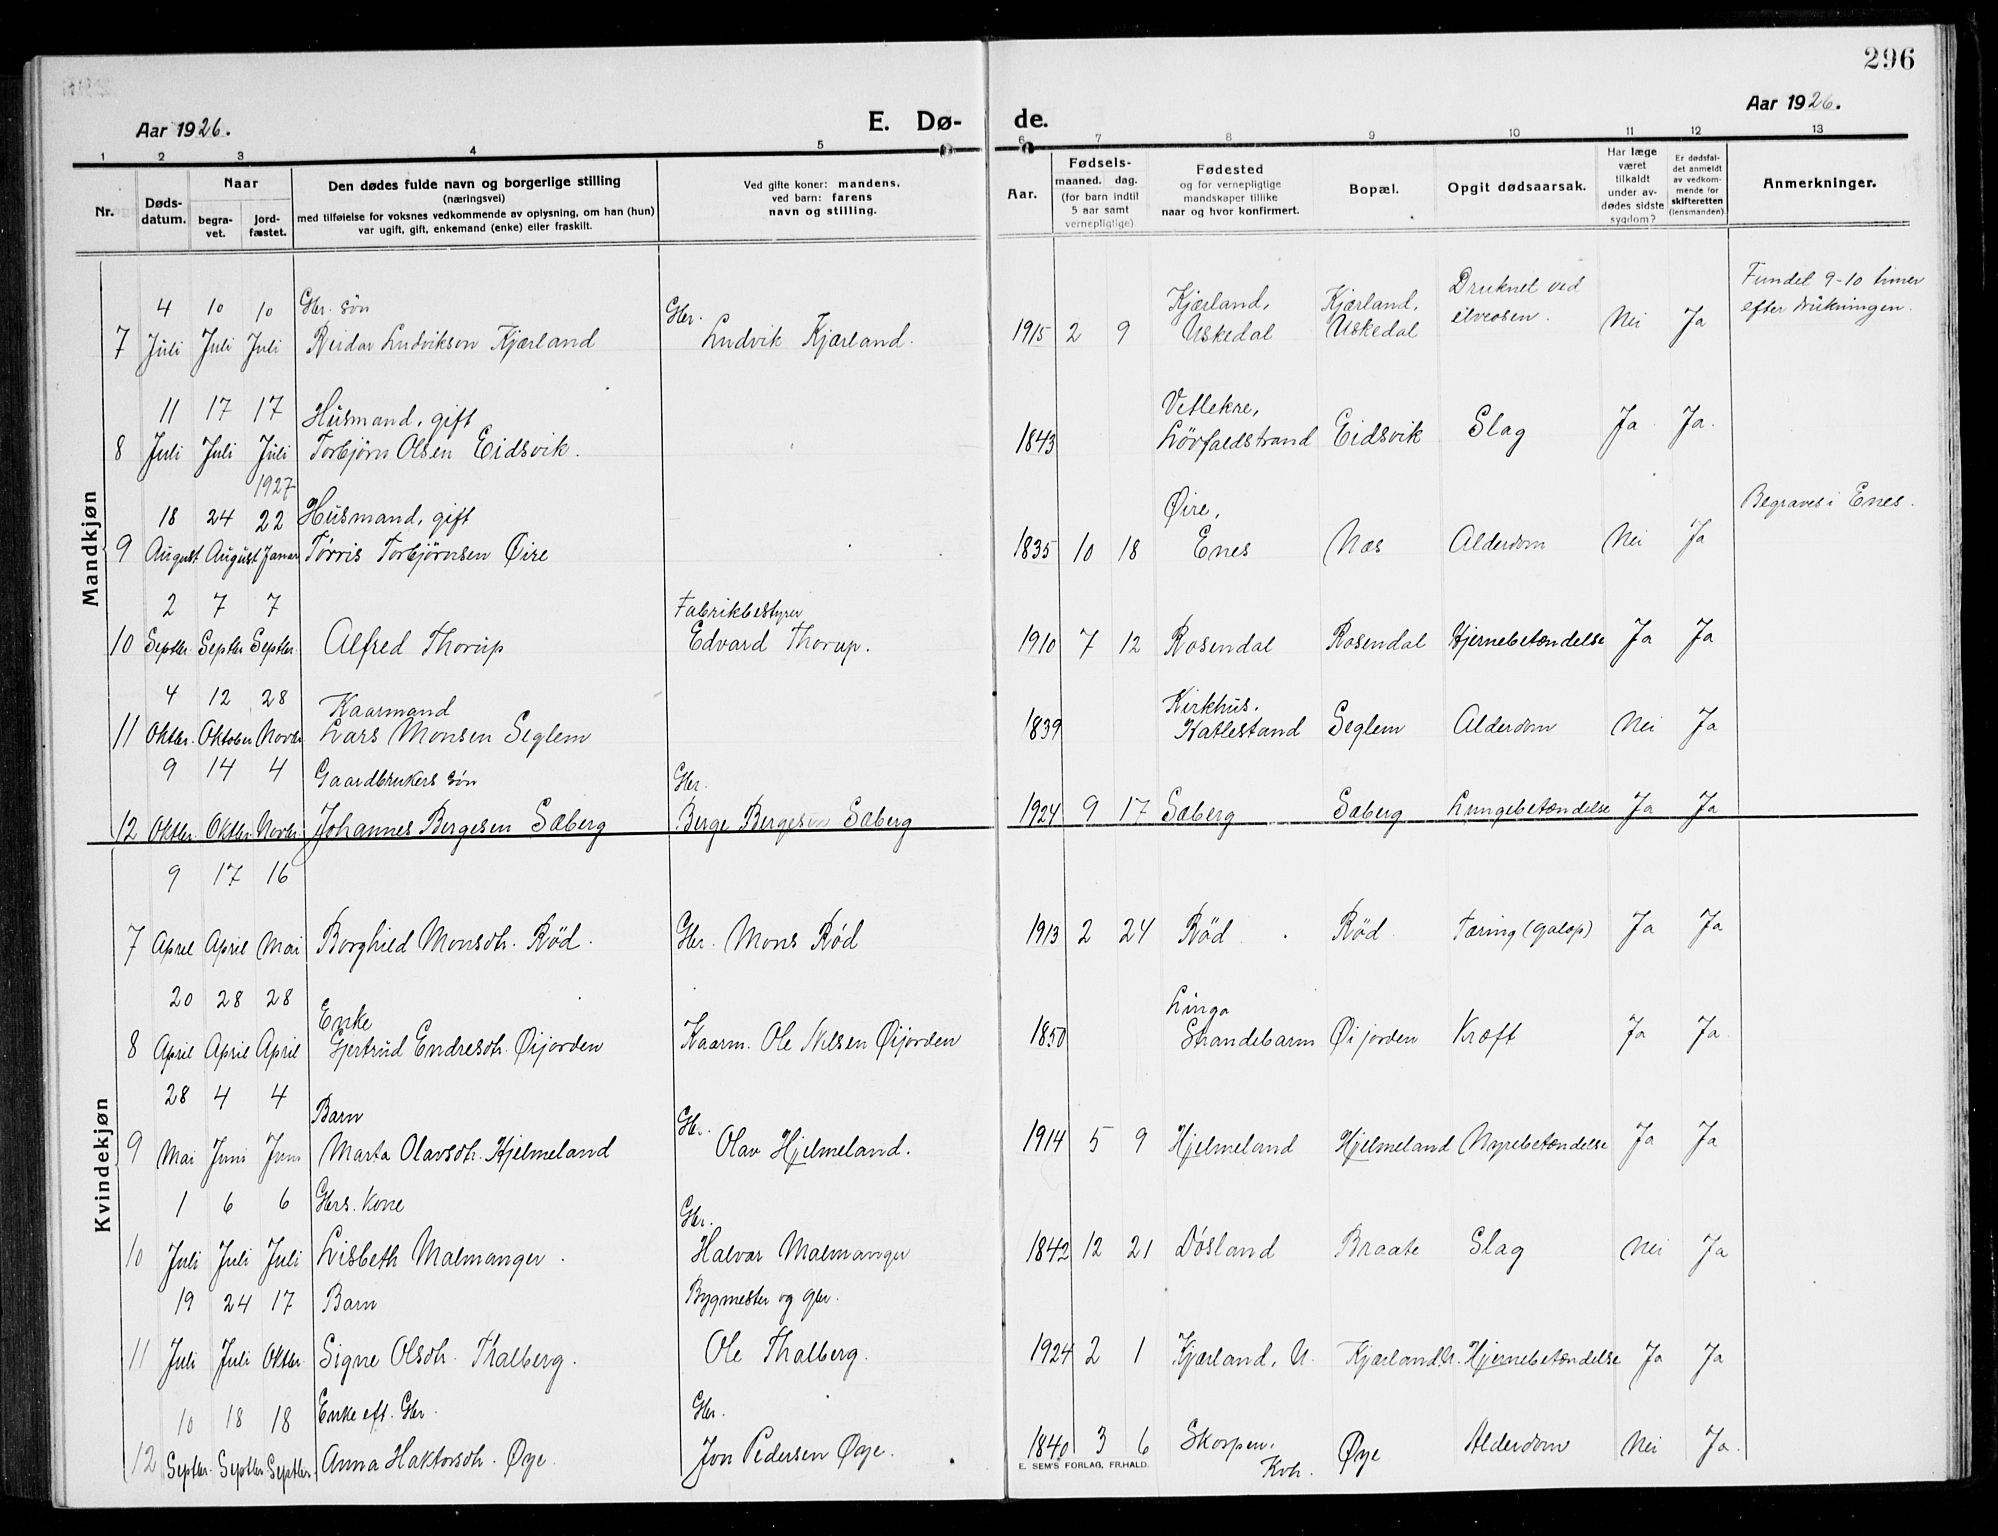 296
Aar 1926.
E. Dø-
de.
Aar 1926.
1 2 3 4 5 6 7 8 9 10 11 12 13
Nr.
Døds-
datum.
Naar
begra-
vet.
jord-
fæstet.
Den dødes fulde navn og borgerlige stilling
(næringsvei)
med tilføielse for voksnes vedkommende av oplysning, om han (hun)
var ugift, gift, enkemand (enke) eller fraskilt.
Ved gifte koner: mandens,
ved barn: farens
navn og stilling.
Aar.
Fødsels-
maaned. dag.
(for barn indtil
5 aar samt
vernepligtige)
Fødested
og for vernepligtige
mandskaper tillike
naar og hvor konfirmert.
Bopæl.
Opgit dødsaarsak.
Har læge
været
tilkaldt
under av-
dødes sidste
sygdom?
Er dødsfal-
det anmeldt
av vedkom-
mende for
skifteretten
(lensmanden).
Anmerkninger.
Mandkjøn
4 10 10 Gbr. søn Gbr. Kjærland, Kjærland, Druknet ved Fundet 9-10 timer
7 Juli Juli Juli Reidar Ludvikson Kjærland Ludvik Kjærland. 1915 2 9 Uskedal Uskedal elveosen. Nei Ja efter drukningen.
11 17 17 Husmand, gift Vetlekre,
8 Juli Juli Juli Torbjørn Olsen Eidsvik. 1843 Løvfaldstrand Eidsvik Slag Ja Ja.
1927
18 24 22 Husmand, gift Øire, Begraves i Enes.
9 August August Januar Tørris Torbjørnsen Øire 1835 10 18 Enes Næs Alderdom Nei Ja
2 7 7 Fabrikbestyrer
10 Septbr. Septbr Septbr. Alfred Thorup Edvard Thorup. 1910 7 12 Rosendal Rosendal Hjernebetændelse Ja Ja
4 12 28 Kaarmand Kirkhus.
11 Oktbr. Oktober Novbr Lars Monsen Seglem 1839 Hatlestand Seglem Alderdom Nei Ja
9 14 4 Gaardbrukers søn Gbr.
12 Oktbr. Oktbr. Novbr. Johannes Bergesen Sæberg Berge Bergesen Sæberg 1924 9 17 Sæberg Sæberg Lungebetændelse Ja Ja
Kvindekjøn
9 17 16
7 April April Mai Borghild Monsdtr. Rød. Gbr. Mons Rød 1913 2 24 Rød Rød Tæring (galop) Ja Ja
20 28 28 Enke Linga
8 April April April Gjertrud Endresdtr. Øijorden Kaarm. Ole Nilsen Øijorden 1850 Strandebarm Øijorden Kræft Ja Ja
28 4 4 Barn Gbr.
9 Mai Juni Juni Marta Olavsdtr. Hjelmeland Olav Hjelmeland. 1914 5 9 Hjelmeland Hjelmeland Nyrebetændelse Ja Ja
1 6 6 Gbrs. kone Gbr.
10 Juli Juli Juli Lisbeth Malmanger. Halvar Malmanger 1842 12 21 Døsland Braate Slag Nei Ja
19 24 17 Barn Bygmester og gbr.
11 Juli Juli Oktbr. Signe Olsdtr. Thalberg. Ole Thalberg. 1924 2 1 Kjærland, U. Kjærland, U. Hjernebetændelse Ja Ja
10 18 18 Enke eft. Gbr. Gbr.
12 Septbr. Septbr Septbr Anna Haktorsdtr. Øye. Jon Pedersen Øye. 1840 3 6 Skorpen, Kvh. Øye Alderdom Nei Ja.
E. SEM'S FORLAG, FR.HALD.